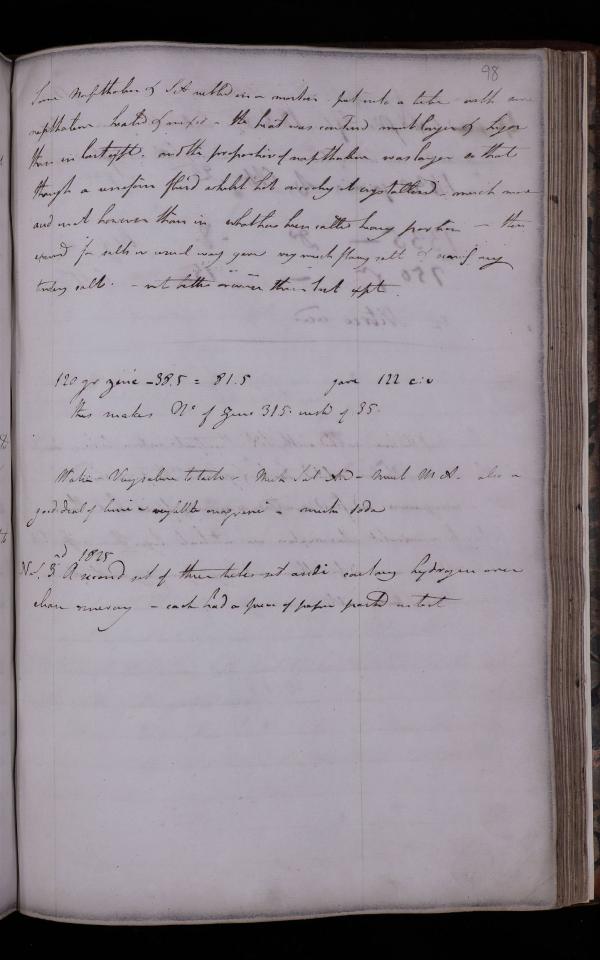 98
Some Napthaline & SA rubbed in a mortar put into a tube with more
napthaline heated & mixed - the heat was continued much longer &
than in last expt. and the proportion of napthaline was larger so that
through a uniform fluid whilst hot on cooling it crystallized - much more
and not however than in what has been called heavy portion - then
for salts in usual way gave very much flaming salt & very
salt. - not better or worse than last expt.
120 gr zinc - 38.5 = 81.5 gave 122 c:i:
this makes No of Zinc 315. instd of 35.
Water - Very saline to taste - Much Sul Acid - much M A. also a
good deal of lime & magnesia - much soda
Nov. 3rd 1825
A second set of three tubes set aside containg hydrogen over
clean mercury - each had a piece of paper pasted as last